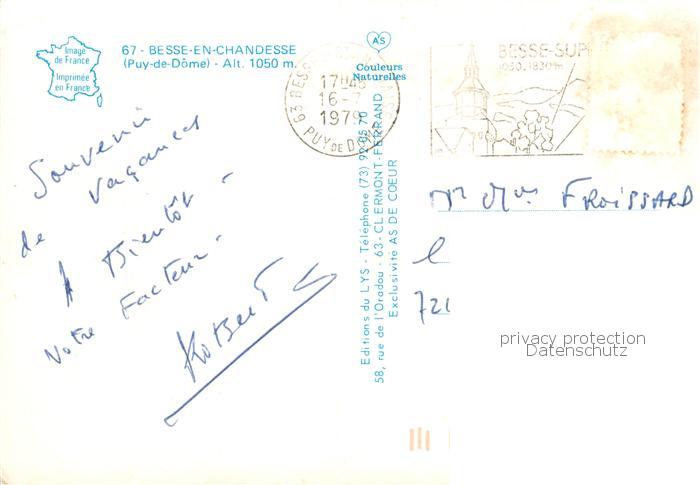 Image
de France
Imprimée
en France
67 - BESSE-EN-CHANDESSE
(Puy-de-Dôme) - Alt. 1050 m.
AS
Couleurs
Naturelles
63 BESSE
17H45
16-7
1979
PUY DE DOME
BESSE-SUP
1050. 1850 m
Souvenir
de vacances
A Bientôt -
Votre Facteur -
Robert
Editions du LYS - Téléphone (73) 92 85 70
58, rue de l'Oradou - 63 - CLERMONT-FERRAND
Exclusivité AS DE COEUR
Mr Mme FROISSARD
72
privacy protection
Datenschutz